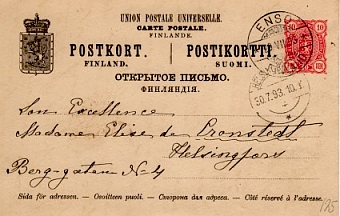 UNION POSTALE UNIVERSELLE.
CARTE POSTALE.
FINLANDE.
POSTKORT. POSTIKORTTI.
FINLAND. SUOMI.
ОТКРЫТОЕ ПИСЬМО.
ФИНЛЯНДІЯ.
ENSO
10 10
30.7.93. 10.
Son Excellence
Madame Elise de Cronstedt
Helsingfors
Berg-gatan N-4
Sida för adressen. – Osoitteen puoli. – Сторона для адреса. – Côté réservé à l'adresse.